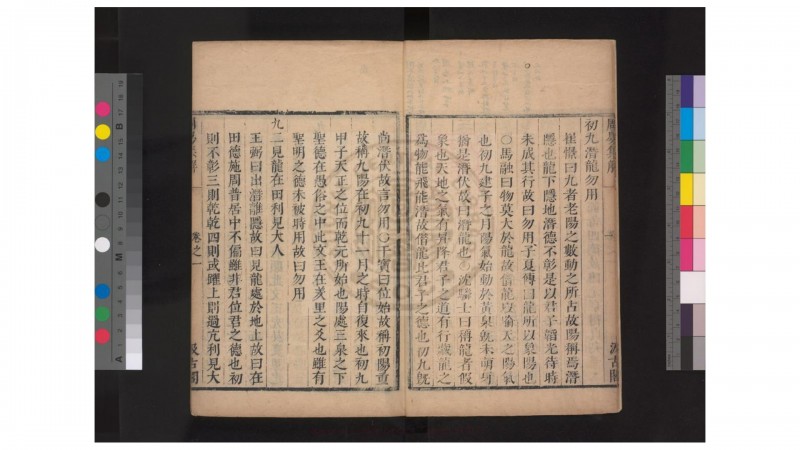 初九潛龍勿用
崔憬曰九者老陽之數動之所占故陽稱焉潛
隱也龍下隱地潛德不彰是以君子韜光待時
未成其行故曰勿用子夏傳曰龍所以象陽也
○馬融曰物莫大於龍故借龍以喻天之陽氣
也初九建子之月陽氣始動於黃泉既未萌芽
猶是潛伏故曰潛龍也○沈驎士曰稱龍者假
象也天地之氣有昇降君子之道有行藏龍之
爲物能飛能潛故借龍比君子之德也初九既
尚潛伏故言勿用○干寶曰位始故稱初陽重
故稱九陽在初九十一月之時自復來也初九
甲子天正之位而乾元所始也陽處三泉之下
聖德在愚俗之中此文王在羑里之爻也雖有
聖明之德未被時用故曰勿用
九二見龍在田利見大人
王弼曰出潛離隱故曰見龍處於地上故曰在
田德施周普居中不偏雖非君位君之德也初
則不彰三則乾乾四則或躍上則過亢利見大
卷之一
汲古閣